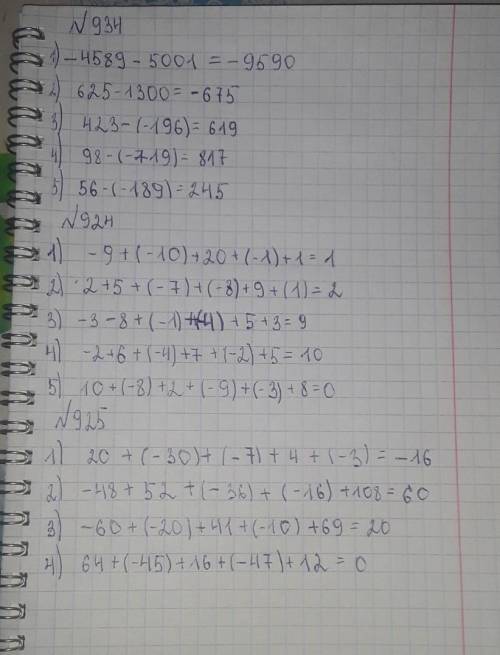 №934
1) -4589 - 5001 = -9590
2) 625 - 1300 = -675
3) 423 - (-196) = 619
4) 98 - (-719) = 817
5) 56 - (-189) = 245
№924
1) -9 + (-10) + 20 + (-1) + 1 = 1
2) 2 + 5 + (-7) + (-8) + 9 + (1) = 2
3) -3 - 8 + (-1) + 5 + 3 = 9
4) -2 + 6 + (-4) + 7 + (-2) + 5 = 10
5) 10 + (-8) + 2 + (-9) + (-3) + 8 = 0
№925
1) 20 + (-30) + (-7) + 4 + (-3) = -16
2) -48 + 52 + (-36) + (-16) + 108 = 60
3) -60 + (-20) + 41 + (-10) + 69 = 20
4) 64 + (-45) + 16 + (-47) + 12 = 0